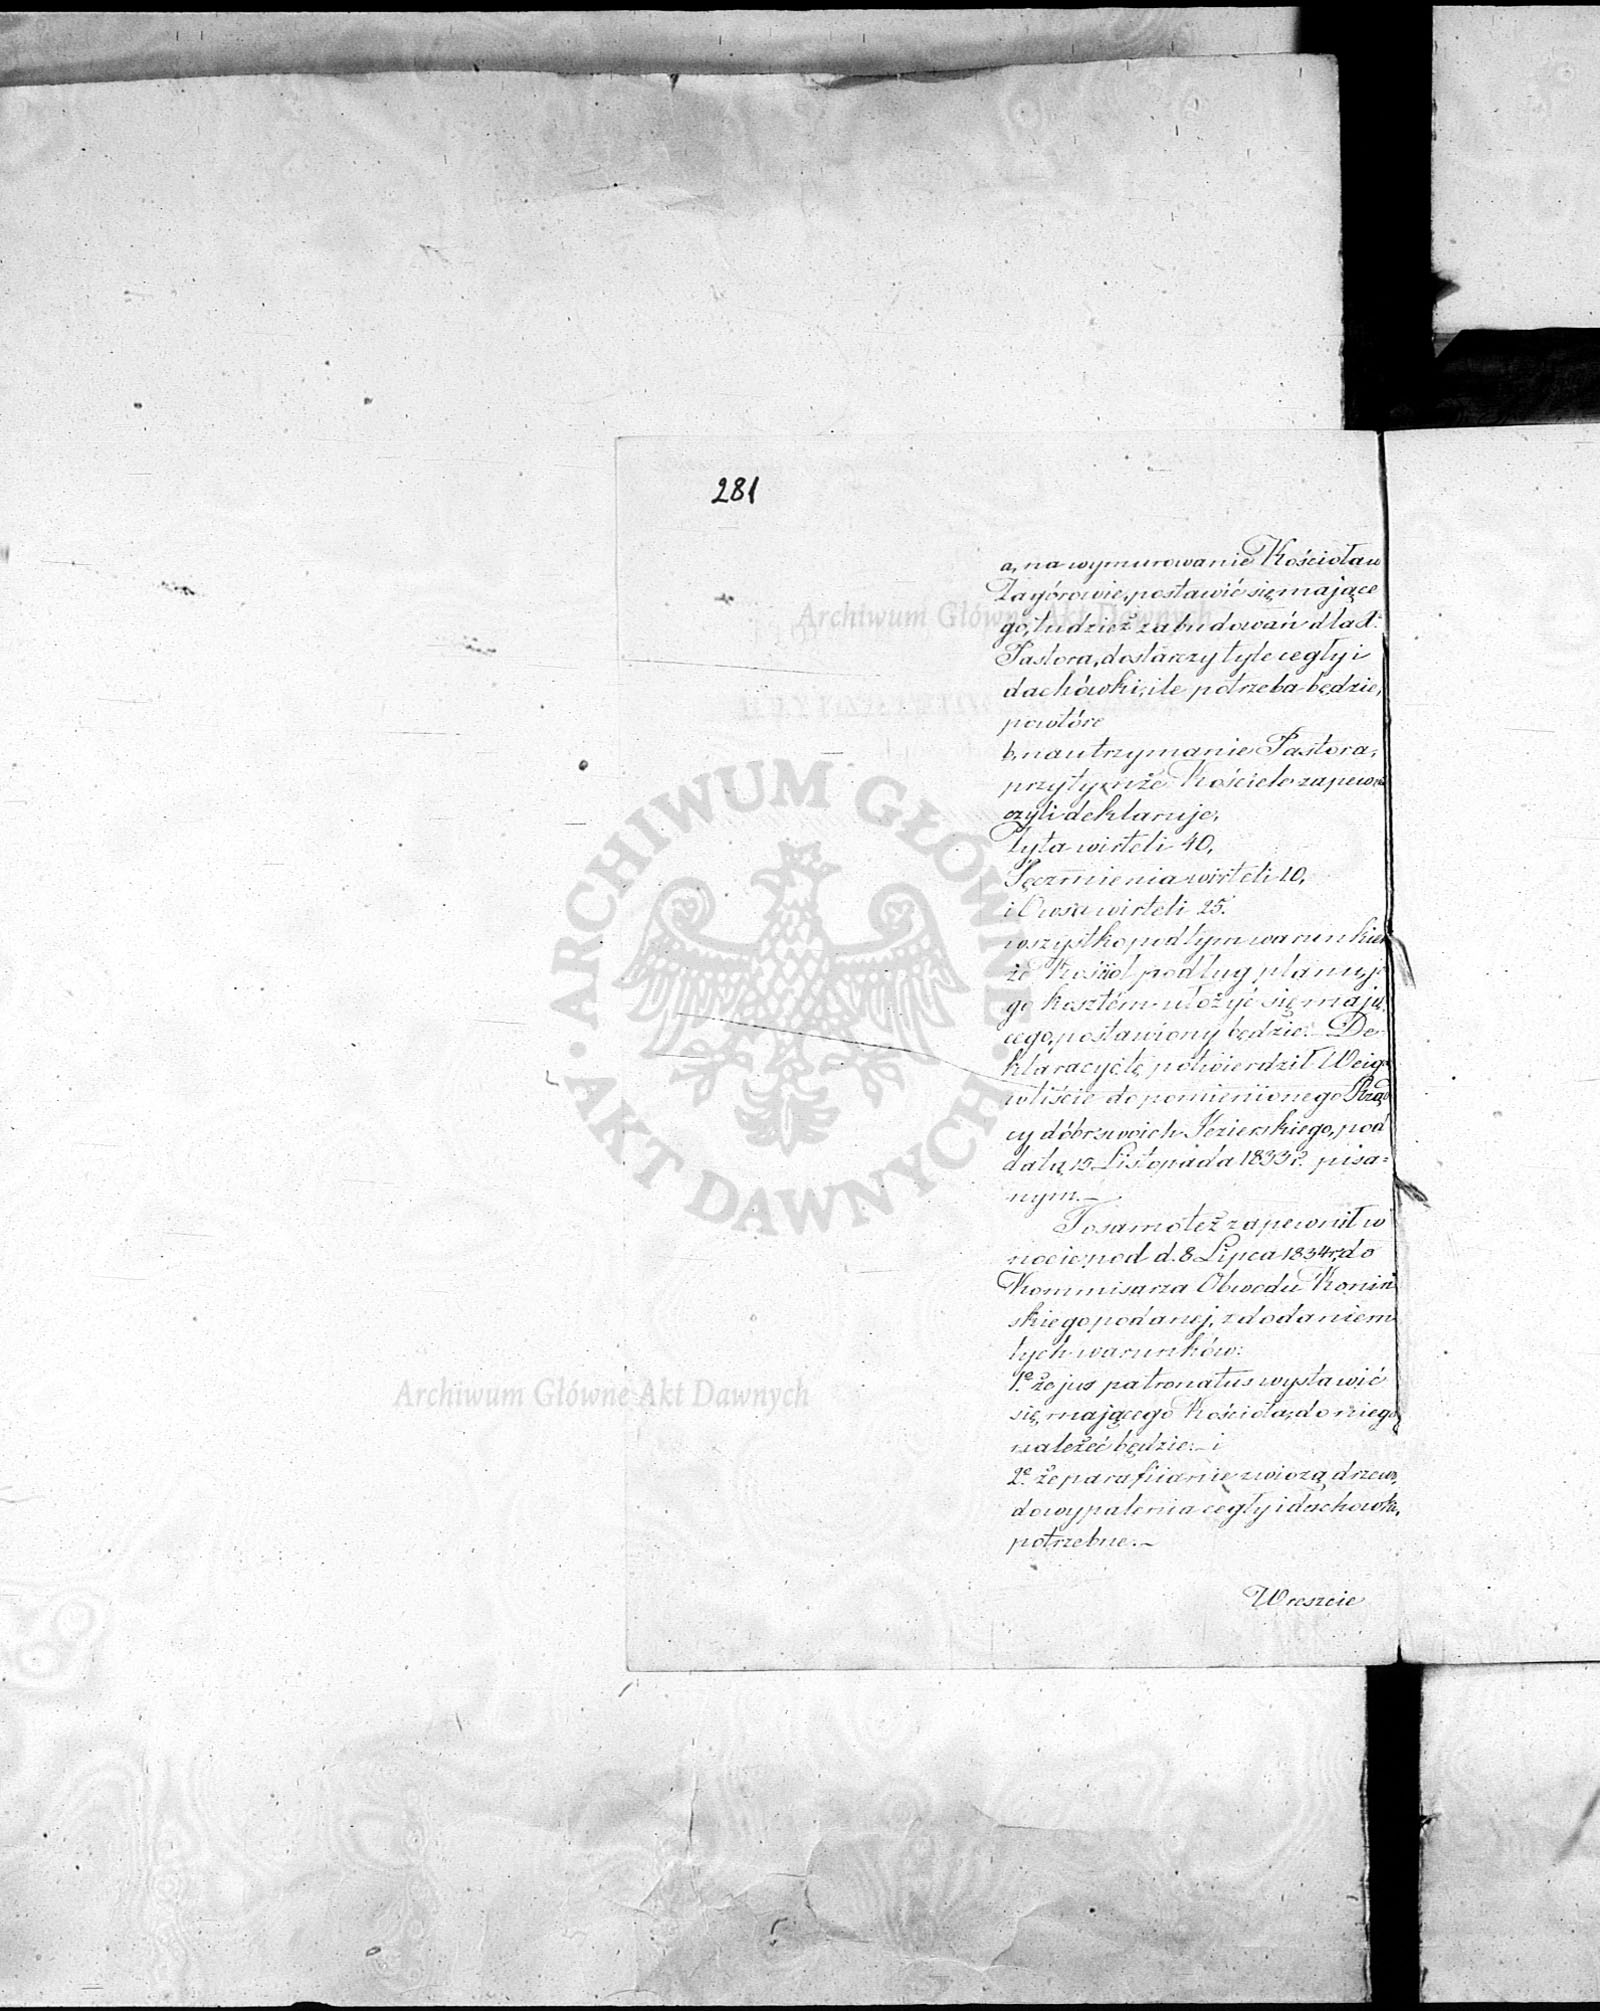 281
a, na wymurowanie Kościoła w
Zagórowie, postawić się mające
go, tudzież zabudowań dla X.
Pastora, dostarczy tyle cegły i
dachówki, ile potrzeba będzie,
powtóre
b, na utrzymanie Pastora,
przy tymże Kościele zapewni
czyli deklaruje,
Żyta wirteli 40,
Jęczmienia wirteli 10,
i Owsa wirteli 25.
wszystko pod tym warunkiem
że Kościół podług planu, je
go kosztem ułożyć się mają
cego, postawiony będzie. De-
klaracyą tę potwierdził
w liście do pomienionego Rząd
cy dóbr swoich Jezierskiego, pod
datą 15 Listopada 1833 r. pisa=
nym.—
To samo też zapewnił w
nocie, pod d. 8 Lipca 1834 r, do
Kommisarza Obwodu Koniń
skiego podanej, z dodaniem
tych warunków:
1.e że jus patronatus wystawić
się mającego Kościoła, do niego
należeć będzie.— i
2.e że parafijanie zwiozą drzewo,
do wypalenia cegły i dachówki,
potrzebne.—
Wreszcie
Archiwum Główne Akt Dawnych
Archiwum Główne Akt Dawnych
ARCHIWUM GŁÓWNE · AKT DAWNYCH ·